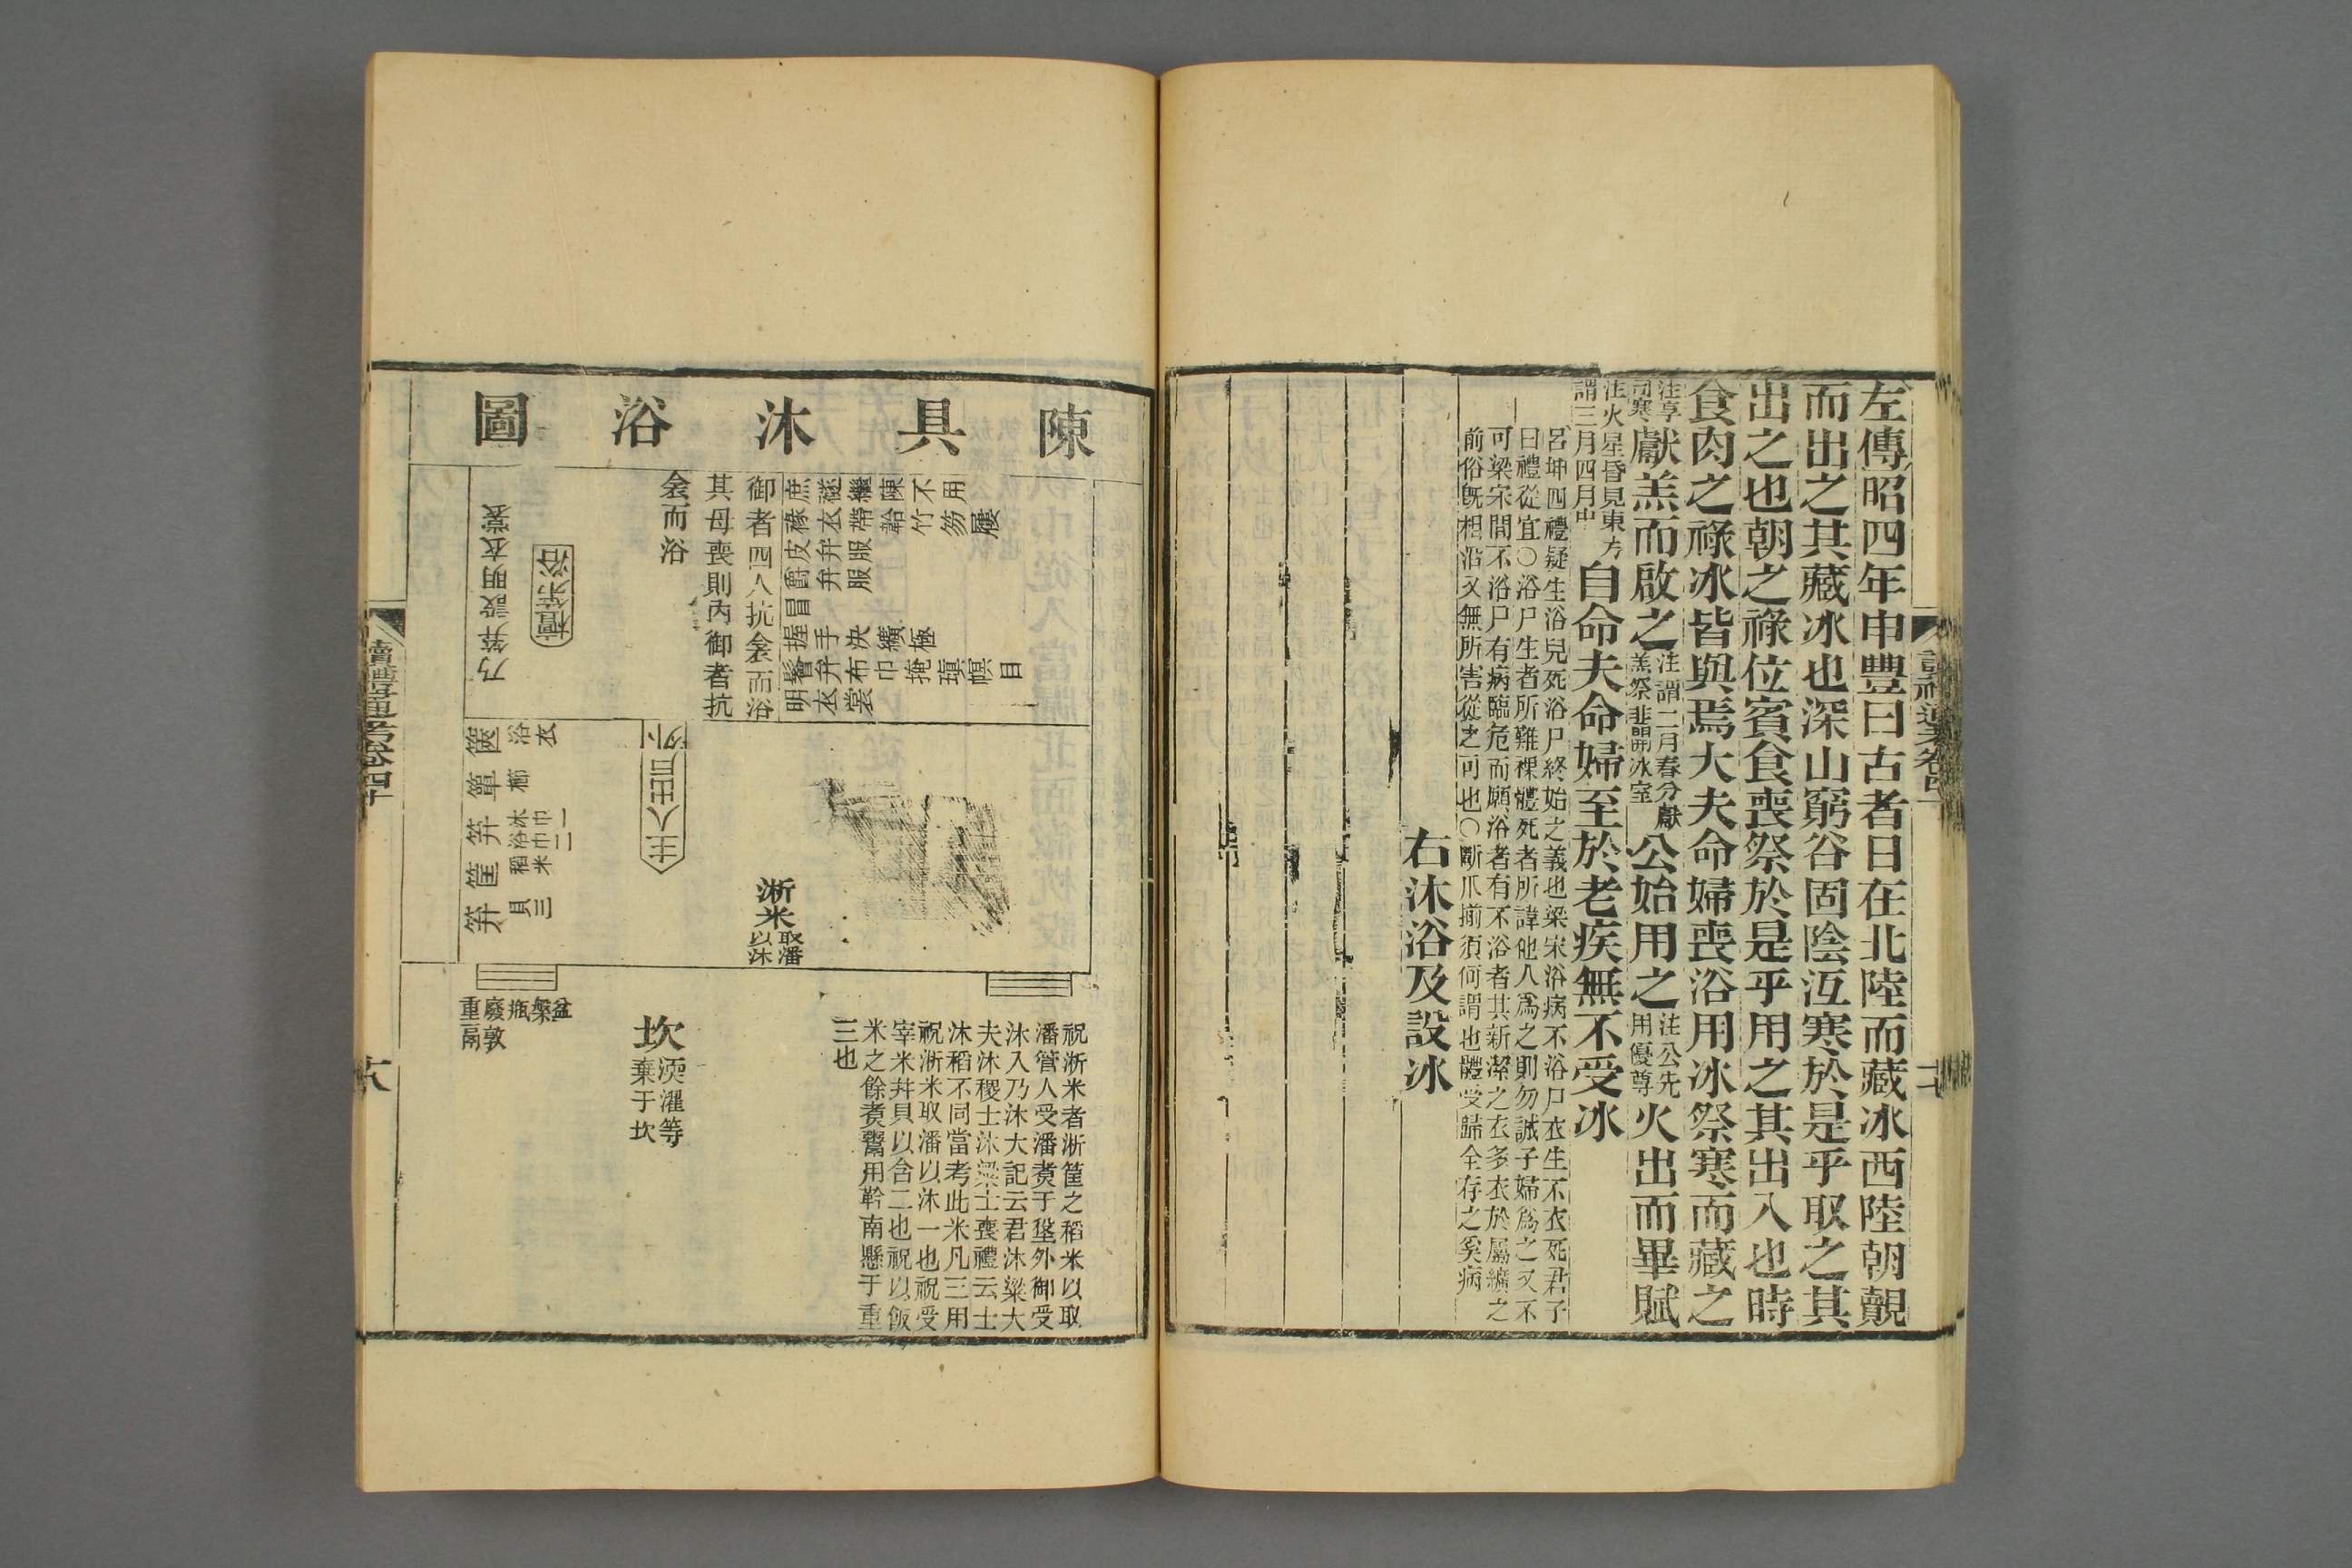 左傳昭四年申豐曰古者日在北陸而藏冰西陸朝覿
而出之其藏冰也深山窮谷固陰沍寒於是乎取之其
出之也朝之祿位賓食喪祭於是乎用之其出入也時
食肉之祿冰皆與焉大夫命婦喪浴用冰祭寒而藏之
注享司寒獻羔而啟之注謂二月春分獻羔祭韭開冰室公始用之注公先用優尊火出而畢賦
注火星昏見東方謂三月四月中自命夫命婦至於老疾無不受冰
呂坤四禮疑生浴兒死浴尸終始之義也梁宋浴病不浴尸衣生不衣死君子
曰禮從宜○浴尸生者所難裸體死者所諱他人爲之則勿誠子婦爲之又不
可梁宋間不浴尸有病臨危而願浴者有不浴者其新潔之衣多衣於屬纊之
前俗旣相沿又無所害從之可也○斷爪揃須何謂也體受歸全存之奚病
右沐浴及設冰
陳具沐浴圖
不用
陳
繼
襚衣
庶祿
竹笏
屨
韐
帶
皮弁服
爵弁服
冒
握手
決
纊極
鬠弁
布巾
掩
瑱
幎目
明衣裳
御者四人抗衾而浴
其母喪則內御者抗
衾而浴
乃笄設明衣裳
浴
主人出戶外
篋
浴衣
簞
櫛
笲
沐巾一
浴巾二
筐
稻米
笲
貝三
淅米
取潘以沐
盆
槃
瓶
廢敦
重鬲
坎
渜濯等
棄于坎
祝淅米者淅筐之稻米以取
潘管人受潘煑于垼外御受
沐入乃沐大記云君沐粱大
夫沐稷士沐粱士喪禮云士
沐稻不同當考此米凡三用
祝淅米取潘以沐一也祝受
宰米并貝以含二也祝以飯
米之餘煑鬻用靲南懸于重
三也
讀禮通考卷四十